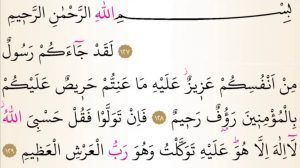 بِسْمِ اللهِ الرَّحْمٰنِ الرَّحِيمِ
﴿١٢٧﴾ لَقَدْ جَاءَكُمْ رَسُولٌ
مِنْ اَنْفُسِكُمْ عَزِيزٌ عَلَيْهِ مَا عَنِتُّمْ حَرِيصٌ عَلَيْكُمْ
بِالْمُؤْمِنِينَ رَؤُفٌ رَحِيمٌ ﴿١٢٨﴾ فَاِنْ تَوَلَّوْا فَقُلْ حَسْبِىَ اللهُ
لَااِلٰهَ اِلَّا هُوَ عَلَيْهِ تَوَكَّلْتُ وَهُوَ رَبُّ الْعَرْشِ الْعَظِيمِ ﴿١٢٩﴾